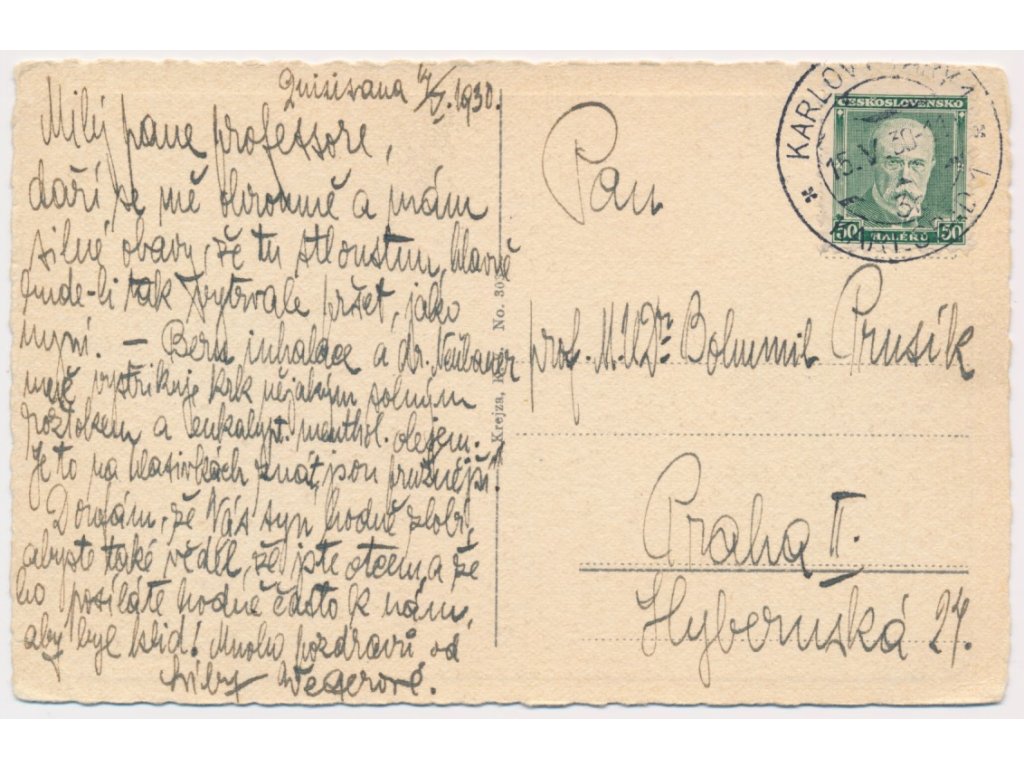 Quisisana 14/V. 1930.
Milý pane professore,
daří se mě ohromně a mám
silné obavy, že tu stloustnu, hlavně
bude-li tak vytrvale pršet, jako
nyní. – Beru inhalace a dr. Neubauer
mně vystřikuje krk nějakým solným
roztokem a eukalypt. menthol. olejem.
Je to na hlasivkách znát, jsou pružnější!
Doufám, že Vás syn hodně zlobí,
abyste také věděl, že jste otcem, a že
ho posíláte hodně často k nám,
aby byl klid! Mnoho pozdravů od
Wegerové.
Krejza, No. 30
KARLOVY VARY 1
15.V.30
ČESKOSLOVENSKO
50 HALÉŘŮ 50
Pan
prof. M.U.Dr. Bohumil Prusík
Praha II.
Hybernská 24.